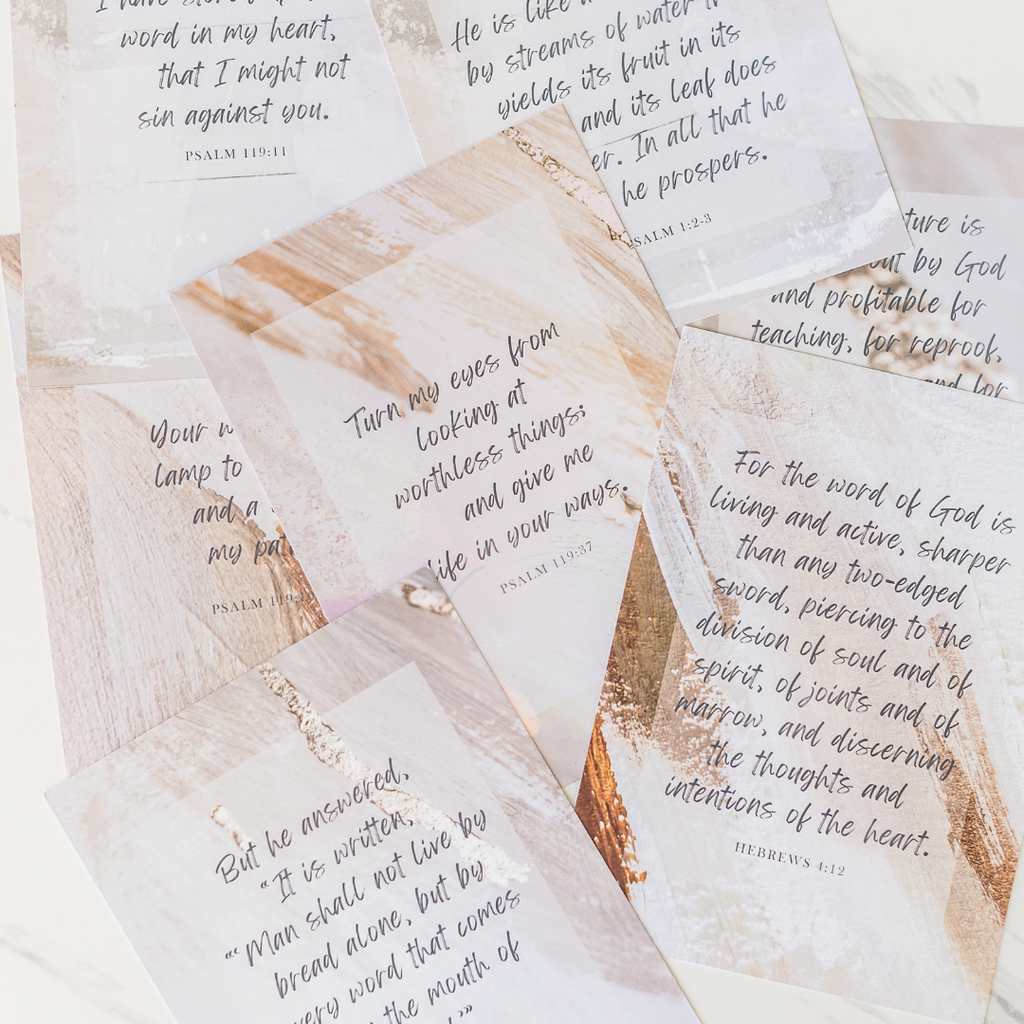 I have
word in my heart,
that I might not
sin against you.
PSALM 119:11
He is like a
by streams of water
yields its fruit in its
and its leaf does
er. In all that he
he prospers.
SALM 1:2-3
ture is
out by God
and profitable for
teaching, for reproof,
and for
Your w
lamp to
and a
my pat
PSALM 119:
Turn my eyes from
looking at
worthless things;
and give me
life in your ways.
PSALM 119:37
For the word of God is
living and active, sharper
than any two-edged
sword, piercing to the
division of soul and of
spirit, of joints and of
marrow, and discerning
the thoughts and
intentions of the heart.
HEBREWS 4:12
But he answered,
"It is written,
"'Man shall not live by
bread alone, but by
very word that comes
the mouth of
'"